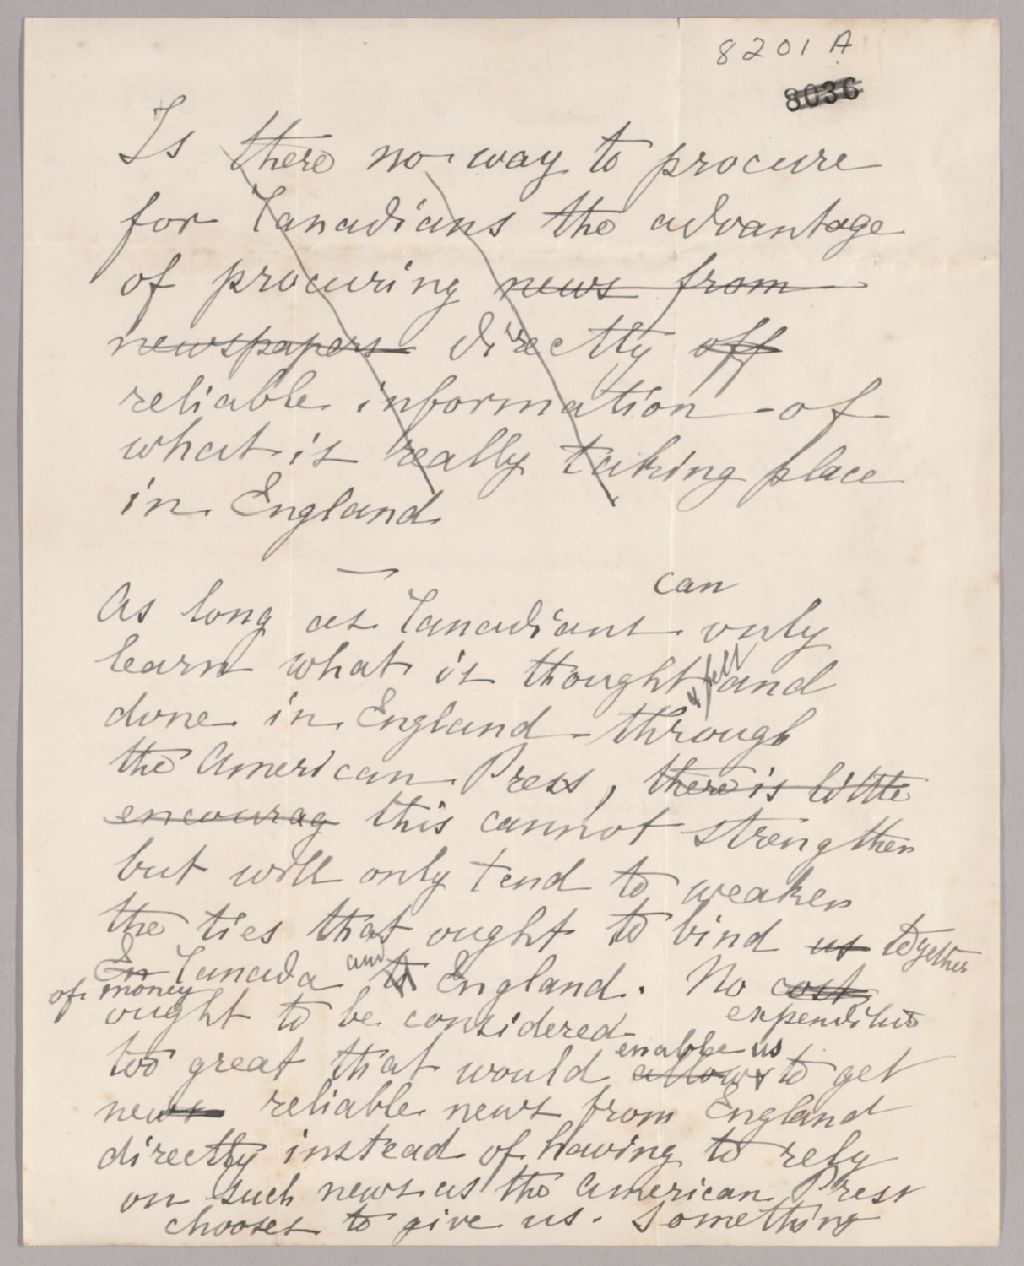 8201 A
8036
Is there no way to procure
for Canadians the advantage
of procuring news from
newspapers directly off
reliable information - of
what is really taking place
in England
can
As long as Canadians only
learn what is thought & felt and
done in England - through
the American Press, there is little
encourag this cannot strengthen
but will only tend to weaken
the ties that ought to bind us together
En Canada and to England. No cost
of money expenditure
ought to be considered
enable us
too great that would allow us to get
news reliable news from England
directly instead of having to rely
on such news as the American Press
chooses to give us. Something